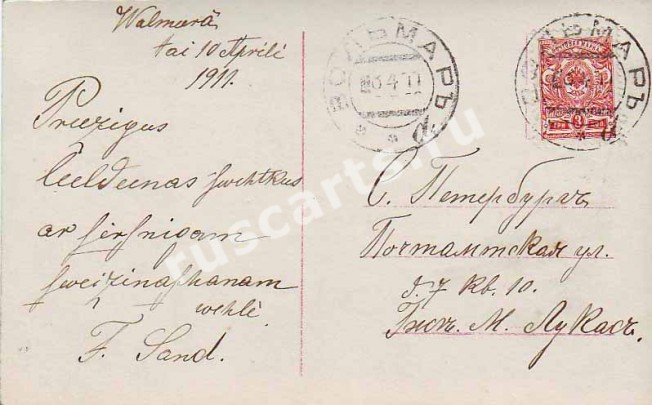 Walmarā
tai 10 Aprīlī
1911.
Preezigus
Leeldeenas swehtkus
ar sirsnigam
sweizinashanam
wehlē
F. Sand.
ВОЛЬМАРЪ
3 4 11
ВОЛЬМАРЪ
3
С. Петербургъ
Почтамтская ул.
д. 7 кв. 10.
М. Лукасъ.
ruscarts.ru